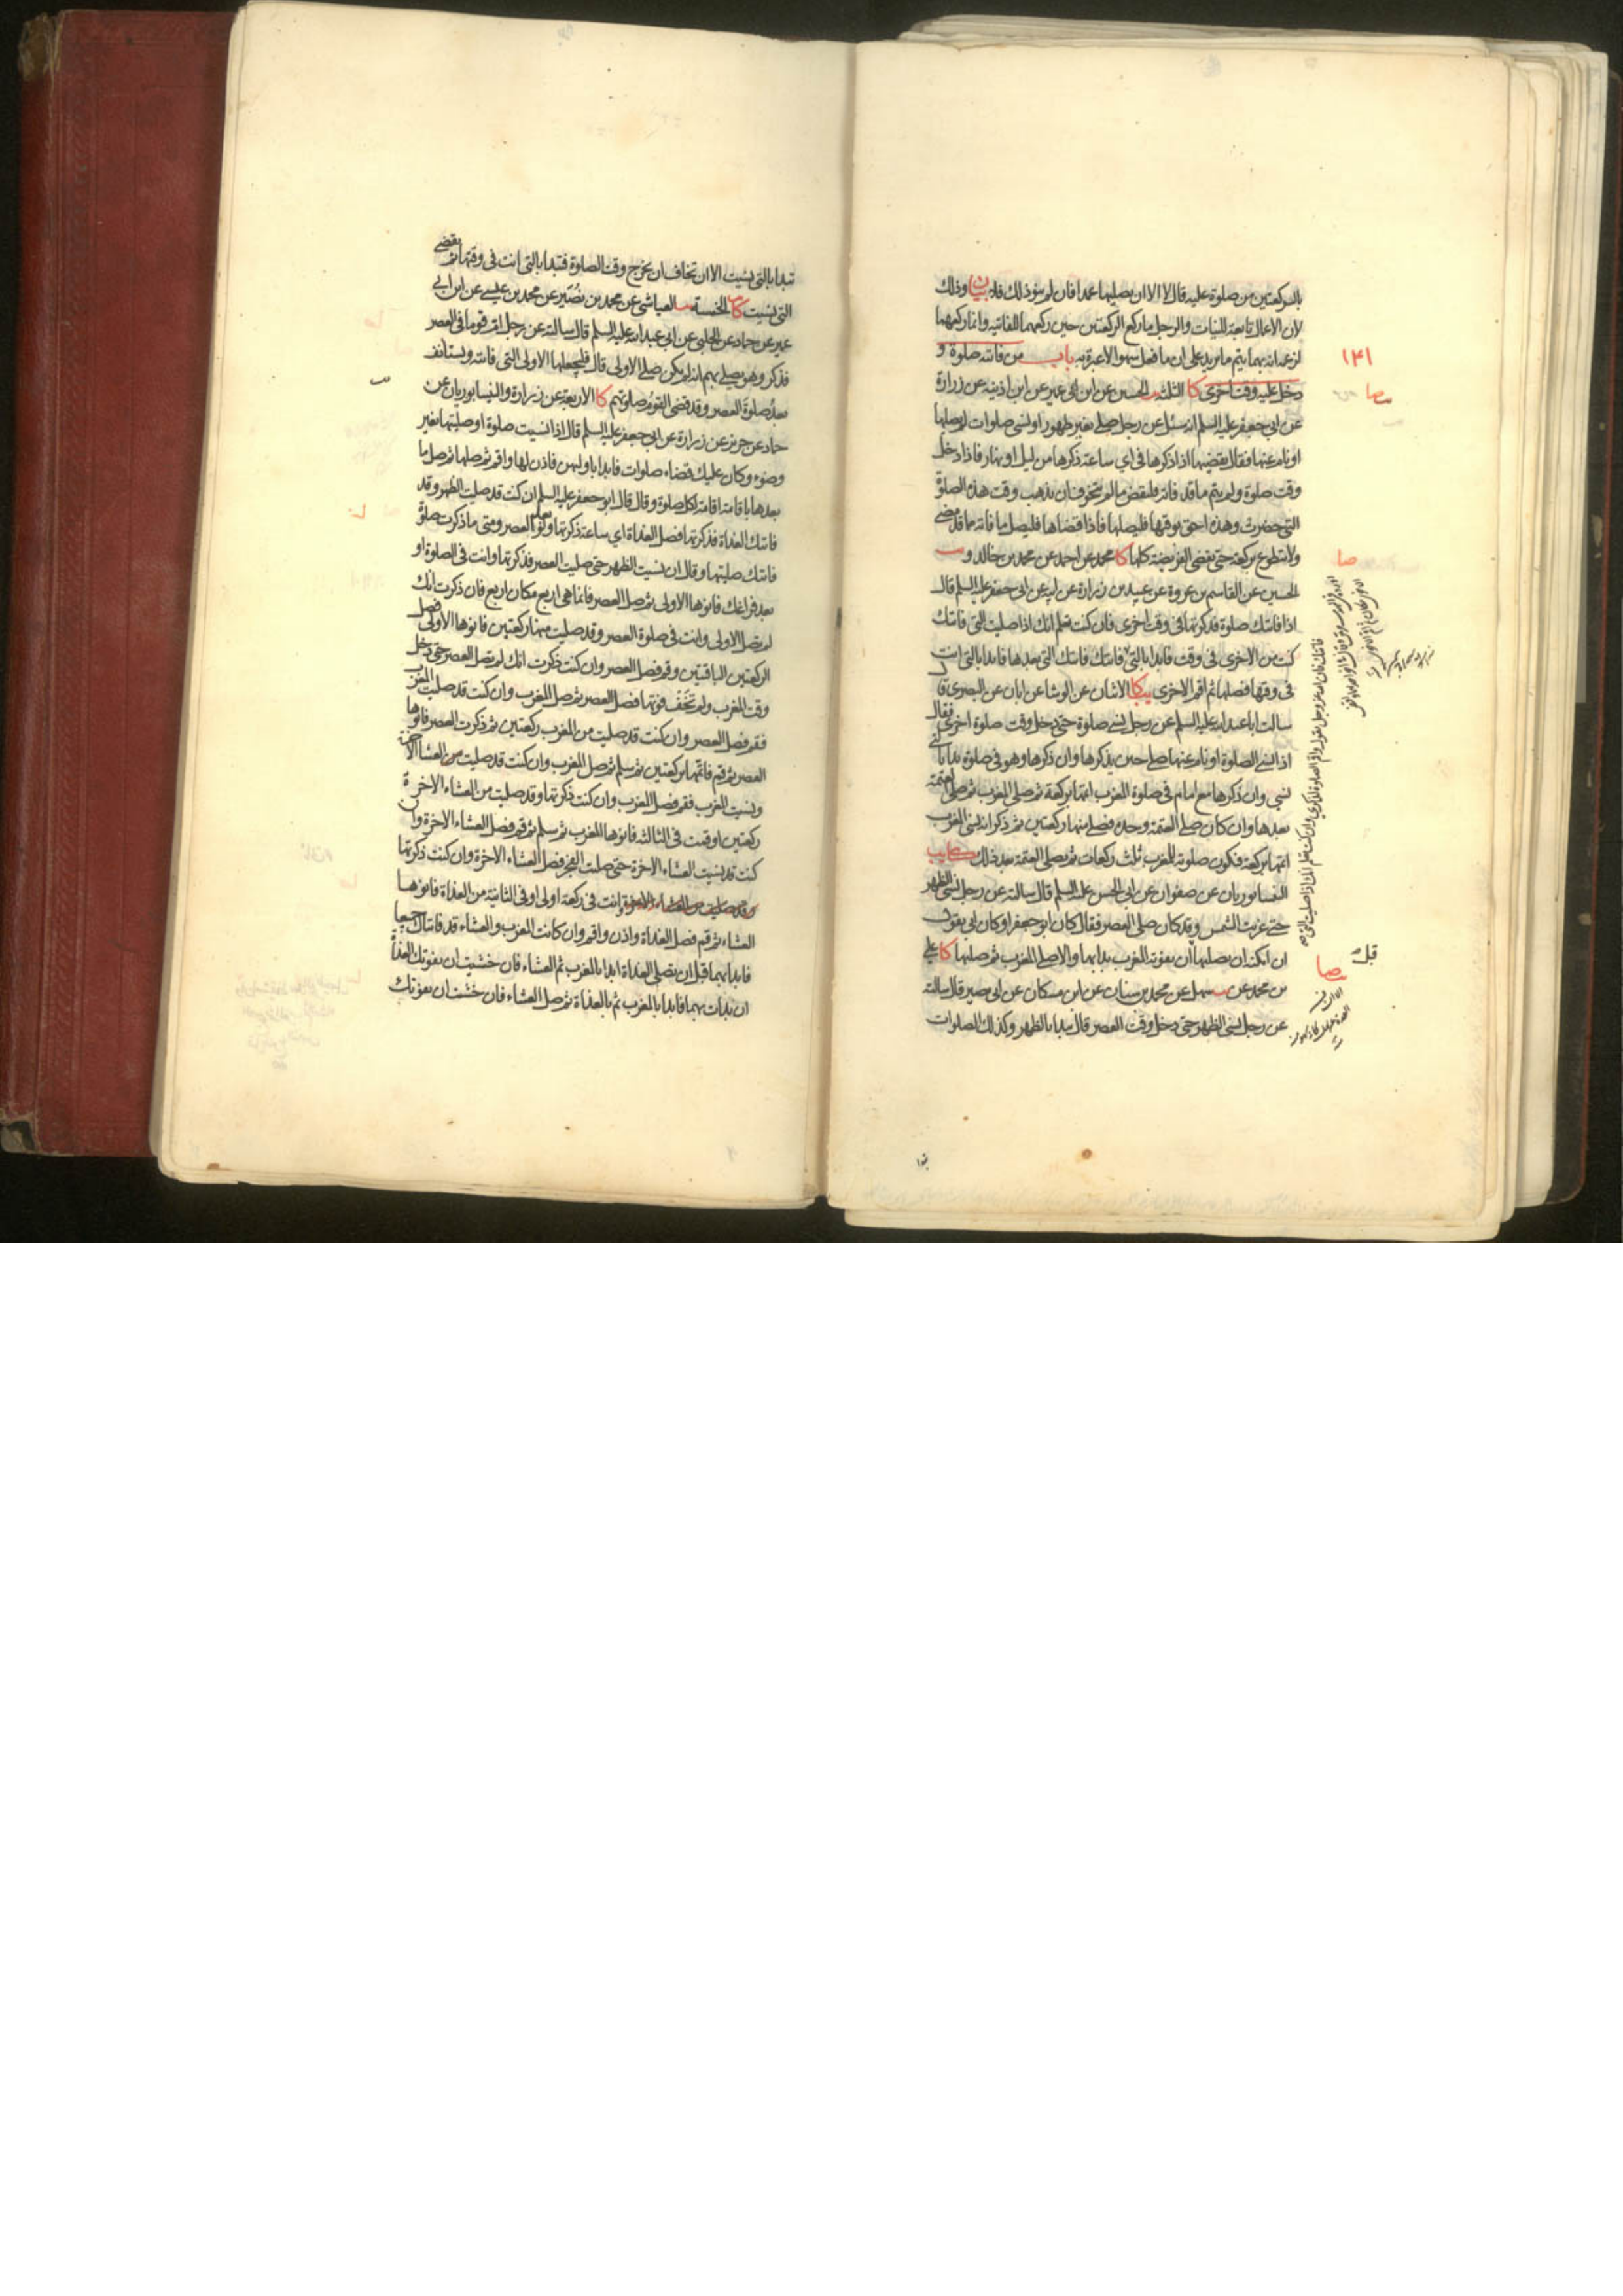 بالركعتين من صلوة عليه قال لا الا ان يصليها عمدا فان لم ينو ذلك فلا بيان وذلك
لان الاعمال تابعة للنيات والرجل ما ركع الركعتين حين ركعهما للفائتة وانما ركعهما
لزعمه انه بهما يتم ما يريد على ان ما فعل سهوا لا عبرة به باب من فاتته صلوة و
دخل عليه وقت اخرى كا الثلثة يب الحسين عن ابن ابي عمير عن ابن اذينة عن زرارة
عن ابي جعفر عليه السلم انه سئل عن رجل صلى بغير طهور او نسي صلوات لم يصلها
او نام عنها فقال يقضيها اذا ذكرها في اي ساعة ذكرها من ليل او نهار فاذا دخل
وقت صلوة ولم يتم ما قد فاته فليقض ما لم يتخوف ان يذهب وقت هذه الصلوة
التي حضرت وهذه احق بوقتها فليصلها فاذا قضاها فليصل ما فاته مما قد مضى
ولا يتطوع بركعة حتى يقضى الفريضة كلها كا محمد عن احمد عن محمد بن خالد و يب
الحسين عن القاسم بن عروة عن عبيد بن زرارة عن ابيه عن ابي جعفر عليه السلم قال
اذا فاتتك صلوة فذكرتها في وقت اخرى فان كنت تعلم انك اذا صليت التي فاتتك
كنت من الاخرى في وقت فابدا بالتي فاتتك التي بعدها فابدا بالتي انت
في وقتها فصلها ثم اقم الاخرى يب كا الاثنان عن الوشا عن ابان عن البصري قال
سالت ابا عبد الله عليه السلم عن رجل نسي صلوة حتى دخل وقت صلوة اخرى فقال
اذا نسي الصلوة او نام عنها صلى حين يذكرها وان ذكرها وهو في صلوة بدا بالتي
نسي وان ذكرها مع امام في صلوة المغرب اتمها بركعة ثم صلى المغرب ثم صلى العتمة
بعدها وان كان صلى العتمة وحده فصلى منها ركعتين ثم ذكر انه نسي المغرب
اتمها بركعة فتكون صلوته للمغرب ثلث ركعات ثم يصلى العتمة بعد ذلك كا يب
النيسابوريان عن صفوان عن ابي الحسن عليه السلم قال سالته عن رجل نسي الظهر
حتى غربت الشمس وقد كان صلى العصر فقال كان ابو جعفر او كان ابي يقول
ان امكنه ان يصليها ان يفوته المغرب بدا بها والا صلى المغرب ثم صلاها كا علي
بن محمد عن سهل عن محمد بن سنان عن ابن مسكان عن ابي بصير قال سالته
عن رجل نسي الظهر حتى دخل وقت العصر قال يبدا بالظهر وكذلك الصلوات
١٤١
صا
قبل
صا
تبدا بالتي نسيت الا ان تخاف ان يخرج وقت الصلوة فتبدا بالتي انت في وقتها ثم تقضي
التي نسيت كا الخمسة يب العياشي عن محمد بن نصير عن محمد بن عيسى عن ابن ابي
عمير عن حماد عن الحلبي عن ابي عبد الله عليه السلم قال سالته عن رجل ام قوما في العصر
فذكر وهو يصلى بهم انه لم يكن صلى الاولى قال فليجعلها الاولى التي فاتته ويستانف
بعد صلوة العصر وقد قضى القوم صلوتهم كا الاربعة عن زرارة والنيسابوريان عن
حماد عن حريز عن زرارة عن ابي جعفر عليه السلم قال اذا نسيت صلوة او صليتها بغير
وضوء وكان عليك قضاء صلوات فابدا باولهن فاذن لها واقم ثم صلها ثم صل ما
بعدها باقامة اقامة لكل صلوة وقال قال ابو جعفر عليه السلم ان كنت قد صليت الظهر وقد
فاتتك الغداة فذكرتها فصل الغداة اي ساعة ذكرتها ولو بعد العصر ومتى ما ذكرت صلوة
فاتتك صليتها وقال ان نسيت الظهر حتى صليت العصر فذكرتها وانت في الصلوة او
بعد فراغك فانوها الاولى ثم صل العصر فانما هي اربع مكان اربع فان ذكرت انك
لم تصل الاولى وانت في صلوة العصر وقد صليت منها ركعتين فانوها الاولى فصل
الركعتين الباقيتين وقم فصل العصر وان كنت ذكرت انك لم تصل العصر حتى دخل
وقت المغرب ولم تخف فوتها فصل العصر ثم صل المغرب وان كنت قد صليت المغرب
فقم فصل العصر وان كنت قد صليت من المغرب ركعتين ثم ذكرت العصر فانوها
العصر ثم قم فاتمها بركعتين ثم سلم ثم صل المغرب وان كنت قد صليت من العشاء الاخرة
ونسيت المغرب فقم فصل المغرب وان كنت ذكرتها وقد صليت من العشاء الاخرة
ركعتين او قمت في الثالثة فانوها المغرب ثم سلم ثم قم فصل العشاء الاخرة وان
كنت قد نسيت العشاء الاخرة حتى صليت الفجر فصل العشاء الاخرة وان كنت ذكرتها
وانت في ركعة اولى او في الثانية من الغداة فانوها
العشاء ثم قم فصل الغداة واذن واقم وان كانت المغرب والعشاء قد فاتتاك جميعا
فابدا بهما قبل ان تصلى الغداة ابدا بالمغرب ثم العشاء فان خشيت ان تفوتك الغداة
ان بدات بهما فابدا بالمغرب ثم بالغداة ثم صل العشاء فان خشيت ان تفوتك